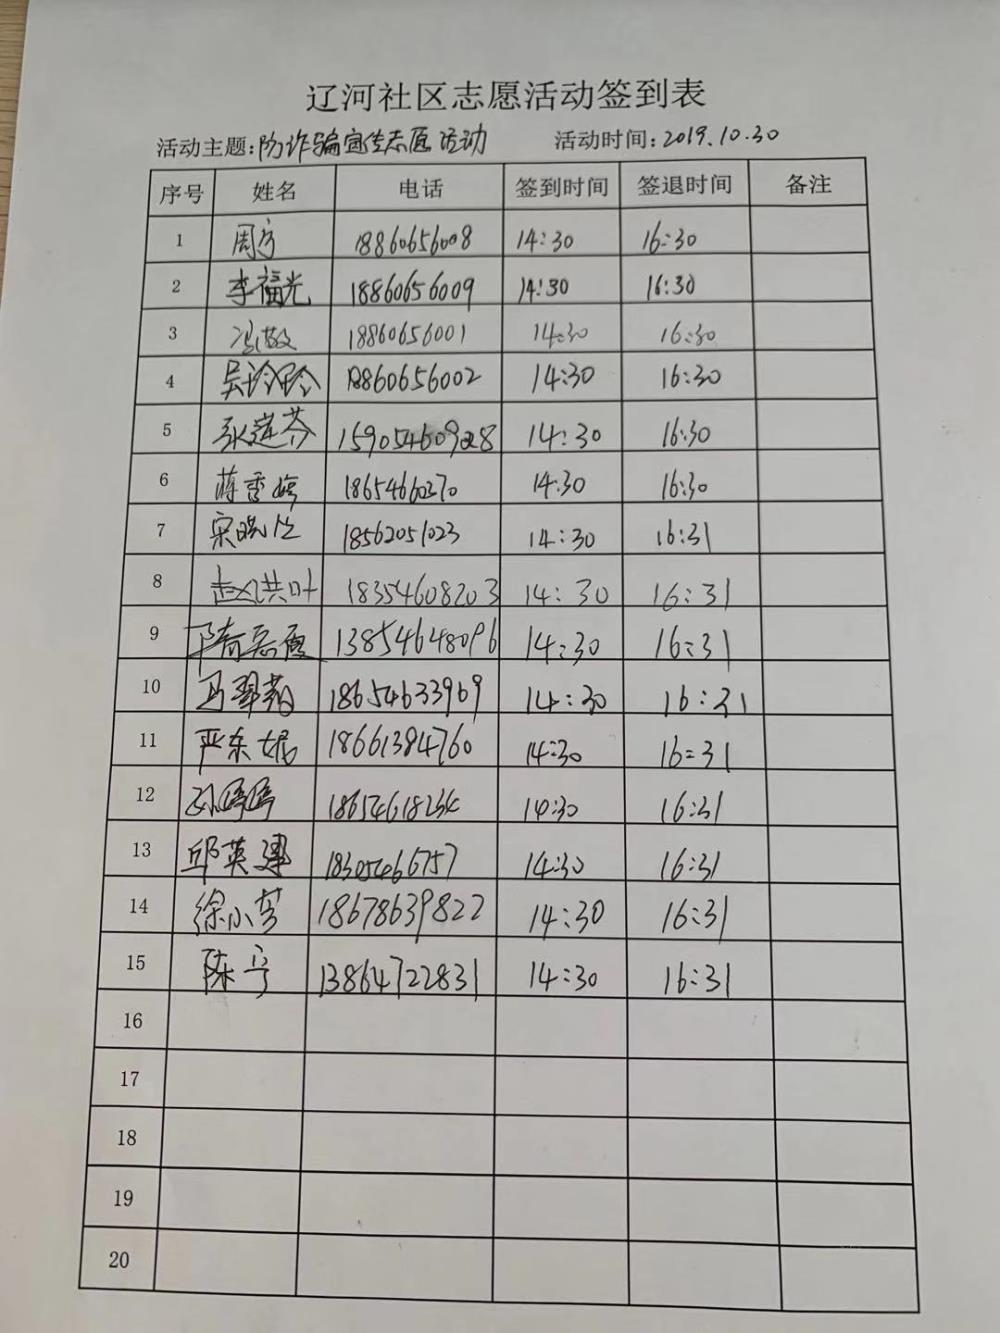 辽河社区志愿活动签到表
活动主题:防诈骗宣传志愿活动 活动时间:2019.10.30
序号 姓名 电话 签到时间 签退时间 备注
1 周宁 18860656008 14:30 16:30
2 李福光 18860656009 14:30 16:30
3 冯敬 18860656001 14:30 16:30
4 吴玲玲 18860656002 14:30 16:30
5 张莲芬 14:30 16:30
6 蒋香婷 18654660370 14:30 16:30
7 宋晓 18562051023 14:30 16:31
8 赵洪叶 18354608203 14:30 16:31
9 隋志霞 13854648096 14:30 16:31
10 冯翠菊 18654633969 14:30 16:31
11 严东妮 18661384760 14:30 16:31
12 孙婷婷 14:30 16:31
13 邱英建 18305466757 14:30 16:31
14 徐小芳 18678639822 14:30 16:31
15 陈宁 13864722831 14:30 16:31
16
17
18
19
20